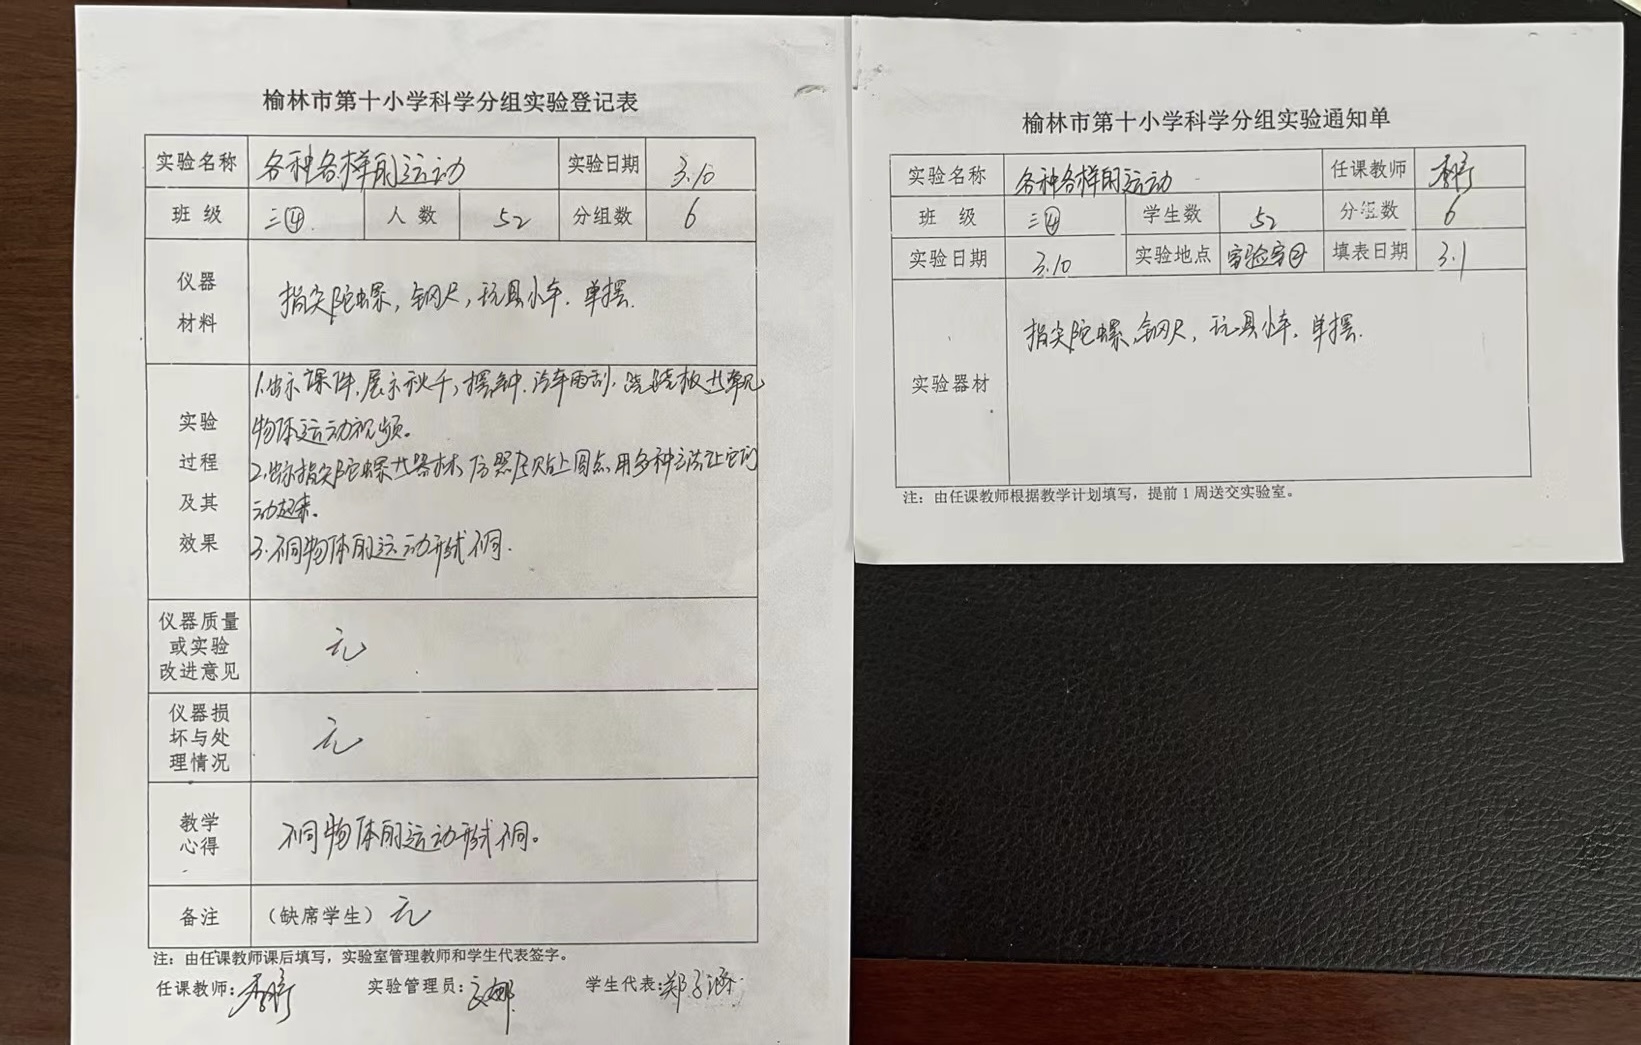 榆林市第十小学科学分组实验登记表
实验名称 各种各样的运动 实验日期 3.10
班 级 三④. 人 数 52 分组数 6
仪器
材料
指尖陀螺，钢尺，玩具小车、单摆.
实验
过程
及其
效果
1.出示课件，展示秋千，摆钟、汽车雨刮、跷跷板
物体运动视频。
2.出示指尖陀螺 器材， 贴上圆点，用多种方法让它们
动起来。
3.不同物体的运动形式不同.
仪器质量
或实验
改进意见
无
仪器损
坏与处
理情况
无
教学
心得
不同物体的运动形式不同。
备注 （缺席学生）无
注：由任课教师课后填写，实验室管理教师和学生代表签字。
任课教师： 实验管理员： 学生代表：郑子涵
榆林市第十小学科学分组实验通知单
实验名称 各种各样的运动 任课教师
班 级 三④ 学生数 52 分组数 6
实验日期 3.10 实验地点 实验室 填表日期 3.1
实验器材
指尖陀螺，钢尺，玩具小车、单摆.
注：由任课教师根据教学计划填写，提前1周送交实验室。